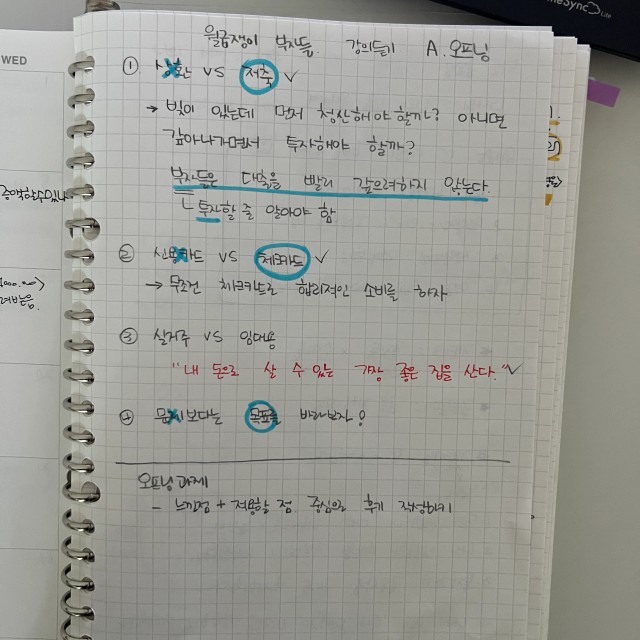 월급쟁이 부자들 강의듣기 A. 오프닝
① 상환 VS 저축 ✓
→ 빚이 있는데 먼저 청산해야 할까? 아니면
갚아나가면서 투자해야 할까?
부자들은 대출을 빨리 갚으려하지 않는다.
ㄴ 투자할 줄 알아야 함
② 신용카드 VS 체크카드 ✓
→ 무조건 체크카드로 합리적인 소비를 하자
③ 실거주 VS 임대용
"내 돈으로 살 수 있는 가장 좋은 집을 산다." ✓
④ 보다는 목표를 바라보자!
오프닝 과제
- 느낀점 + 적용할 점 중심으로 후기 작성하기
WED